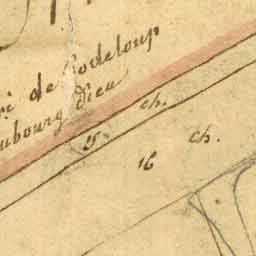 de Godeloup
aubourg Dieu
15 ch.
16 ch.